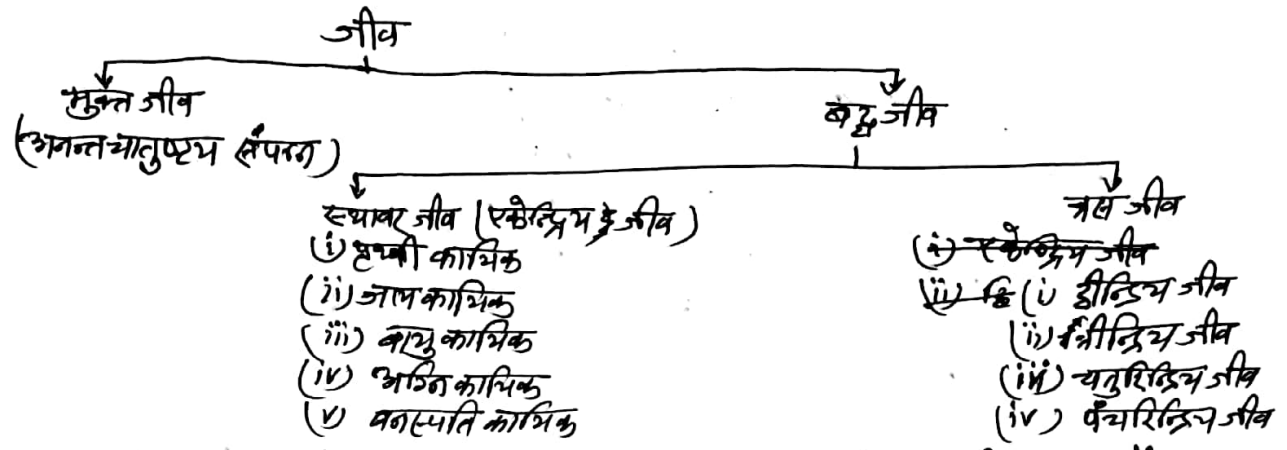 जीव
मुक्त जीव
(अनन्त चातुष्टय संपन्न)
बद्ध जीव
स्थावर जीव (एकेन्द्रिय जीव)
(i) पृथ्वी कायिक
(ii) आप कायिक
(iii) वायु कायिक
(iv) अग्नि कायिक
(v) वनस्पति कायिक
त्रस जीव
(i) एकेन्द्रिय जीव
(ii) द्वि (i) द्वीन्द्रिय जीव
(ii) त्रीन्द्रिय जीव
(iii) चतुरिन्द्रिय जीव
(iv) पंचरिन्द्रिय जीव